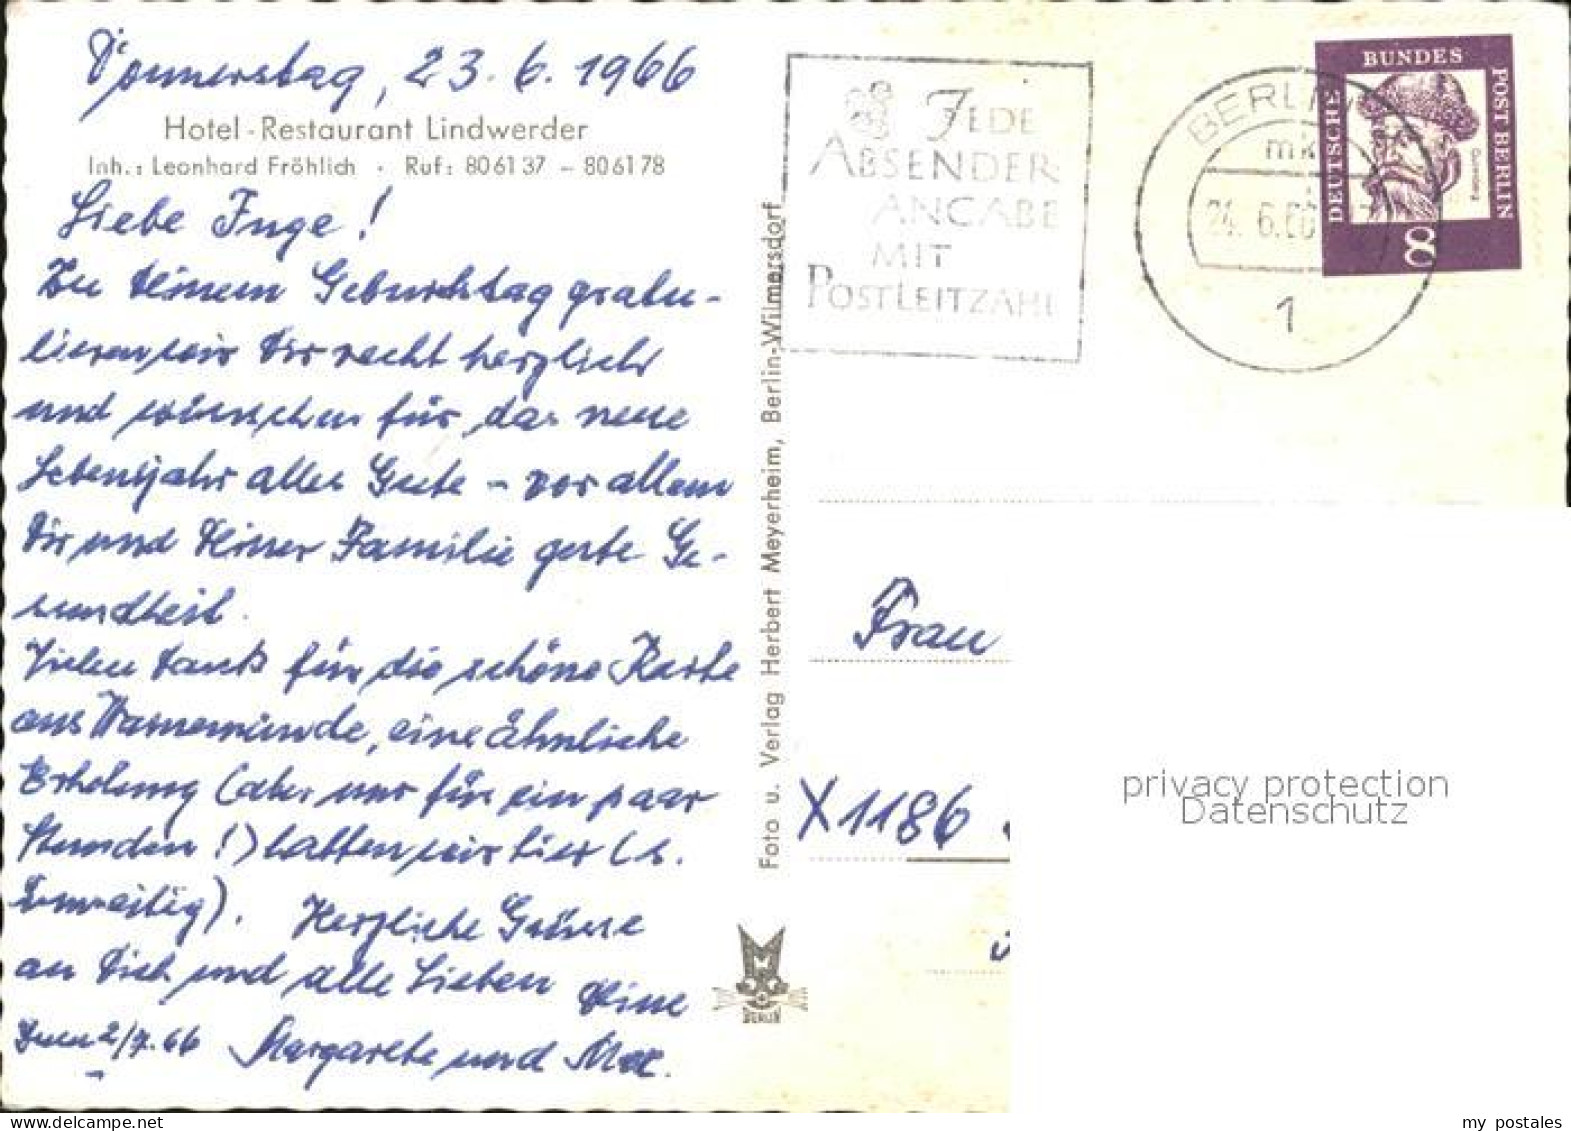 Donnerstag, 23.6.1966
Hotel-Restaurant Lindwerder
Inh.: Leonhard Fröhlich · Ruf: 80 61 37 – 80 61 78
Liebe Inge!
Zu Deinem Geburtstag gratu-
lieren wir Dir recht herzlich
und wünschen für das neue
Lebensjahr alles Gute – vor allem
Dir und Deiner Familie gute Ge-
sundheit.
Vielen Dank für die schöne Karte
aus Warnemünde, eine ähnliche
Erholung (aber nur für ein paar
Stunden!) hatten wir hier (s.
umseitig). Herzliche Grüsse
an Dich und alle Lieben Deine
2/7.66 Margarete und Max.
Foto u. Verlag Herbert Meyerheim, Berlin-Wilmersdorf
BERLIN
JEDE
ABSENDER-
ANGABE
MIT
POSTLEITZAHL
BERLIN
mk
24.6.66
1
DEUTSCHE
BUNDES
POST BERLIN
Gutenberg
8
Frau
X1186
privacy protection
Datenschutz
my_postales